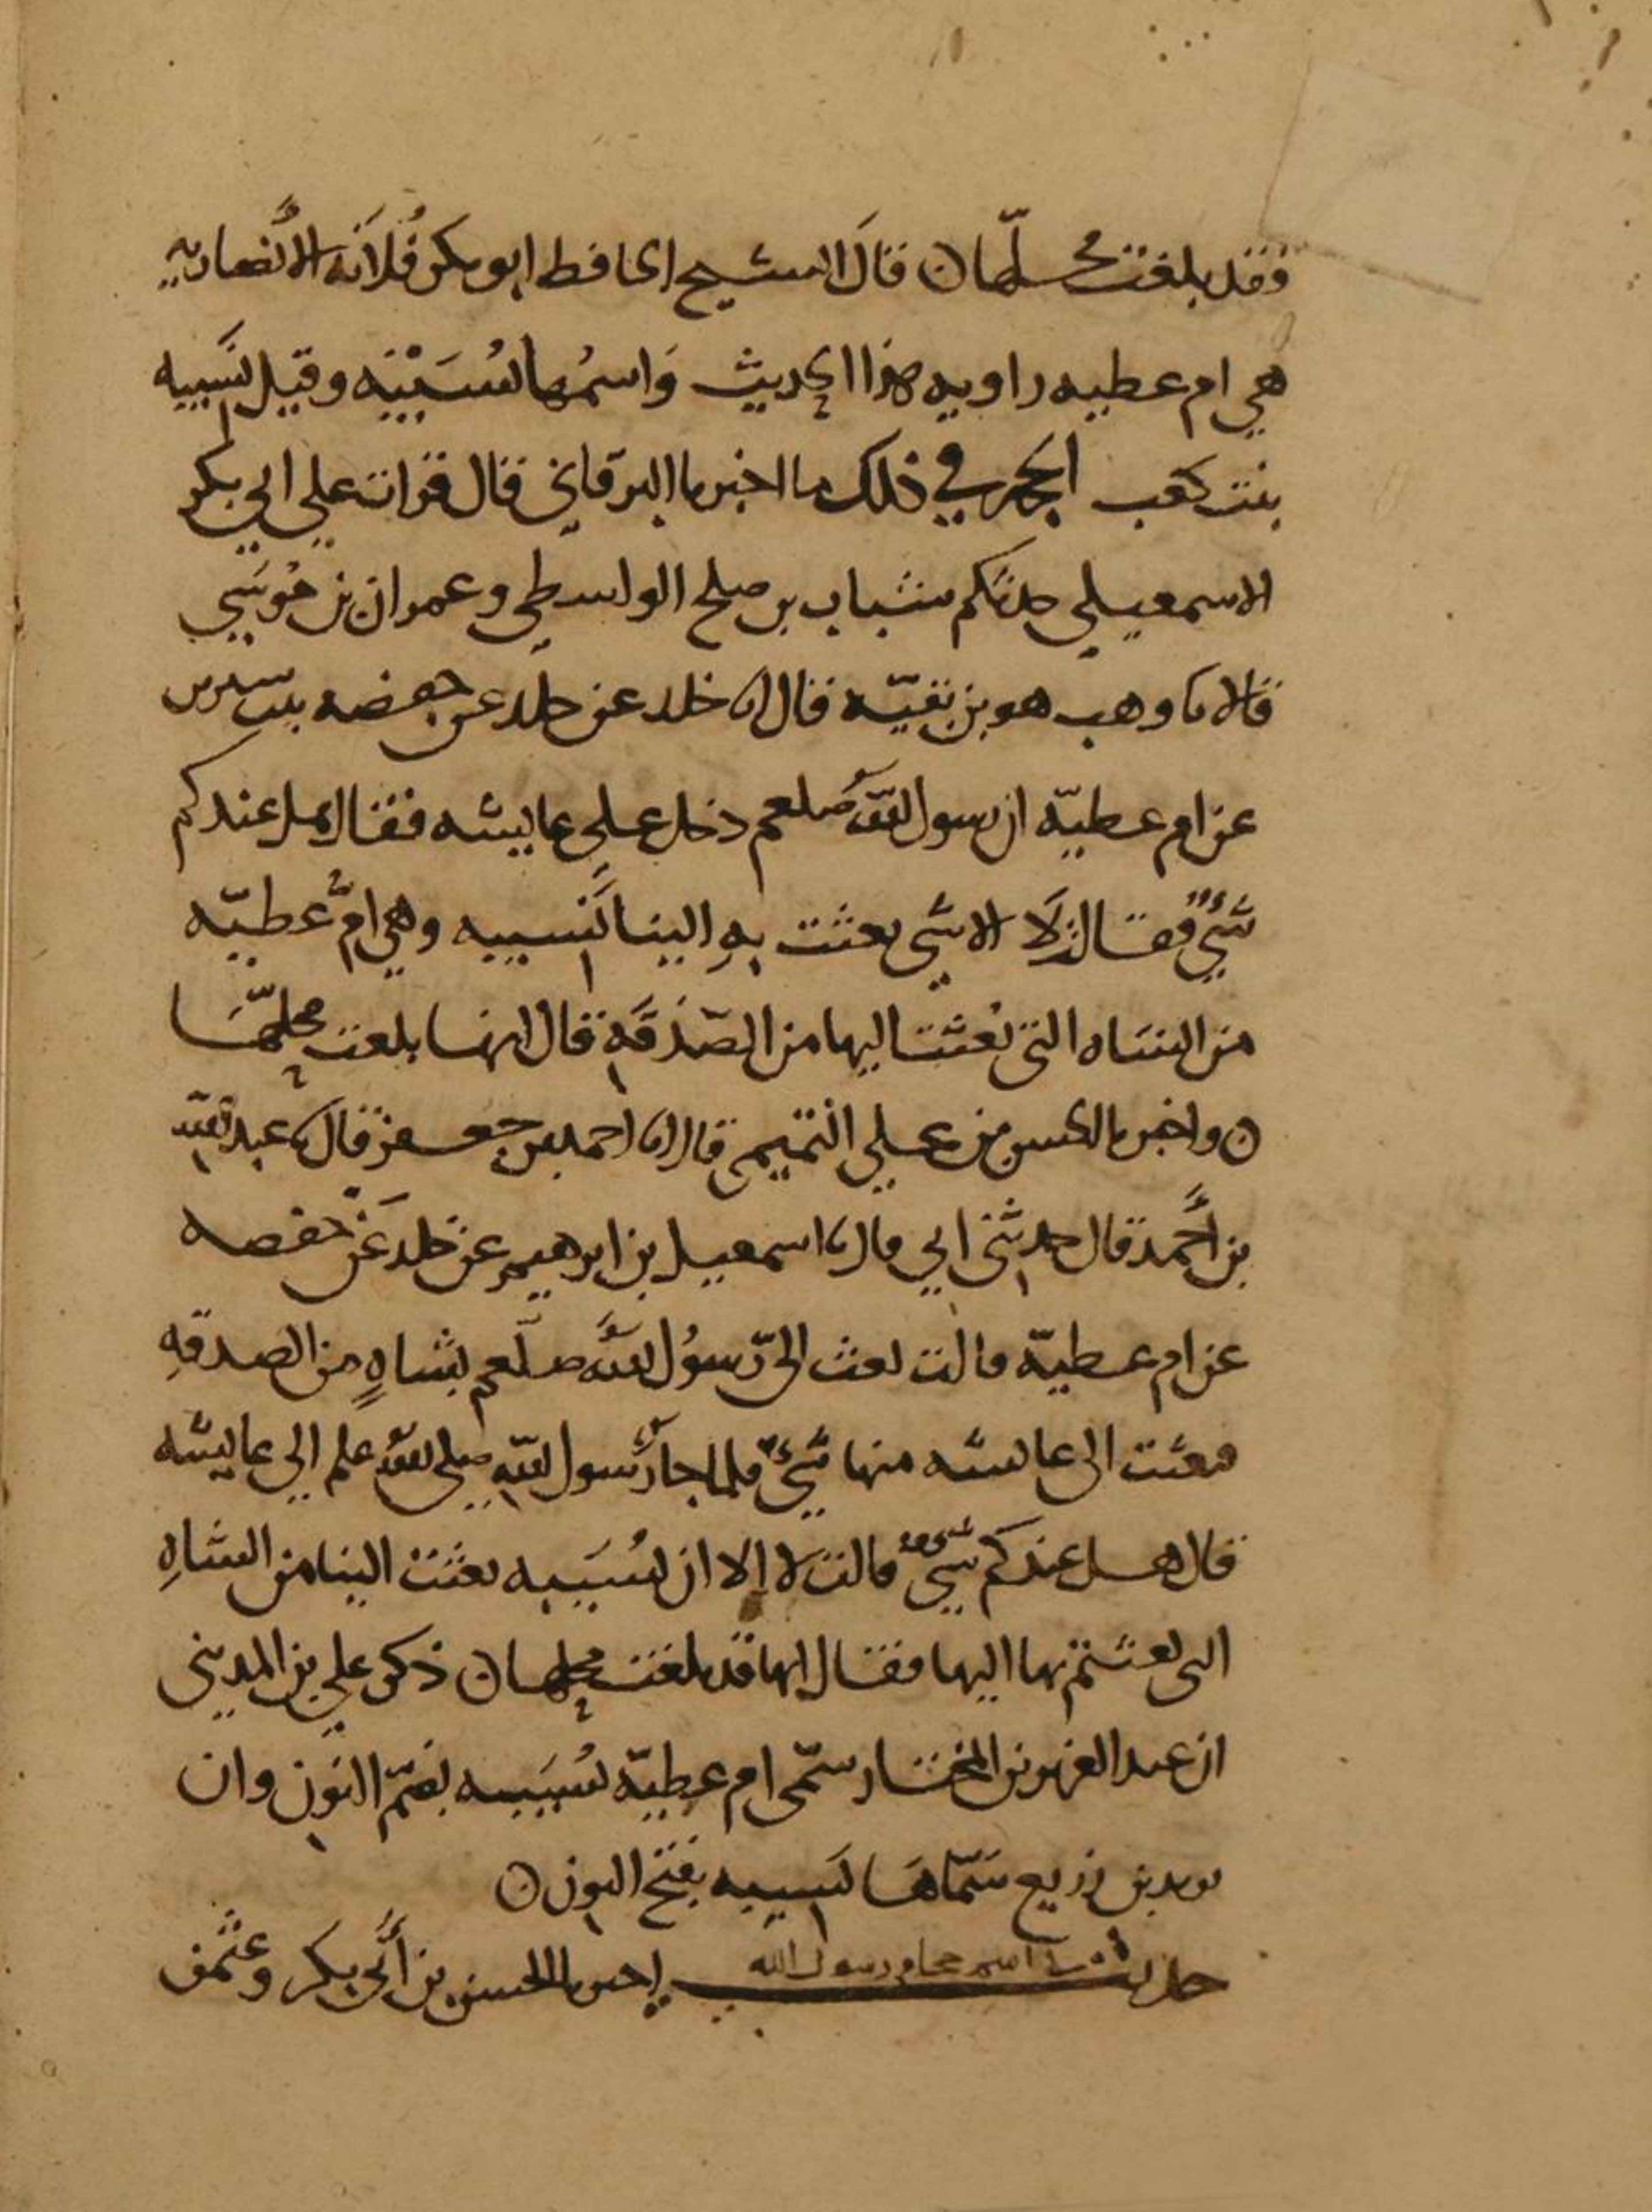 فقد بلغت محلّها ن قال الشيخ الحافظ ابو بكر فُلانَة الأنصاريه
هي ام عطيه راويه هذا الحديث وَاسمُها نُسَيْبَه وقيل نَسِيبه
بنت كعب الحجه في ذلك ما اخبرنا البرقاني قال قرات علي ابي بكر
الاسمعيلي حدثكم شباب بن صلح الواسطي وعمران بن مُوسَي
قالا نا وهب هو بن بقيّه قال انا خلد عن خلد عن حفصه بنت سيرين
عن ام عطيّه ان رسول الله صلعم دخل علي عاييشه فقال هل عندكم
شَيٌ فقالت لَا الا شي بعثت بهِ الينا نَسِيبه وهي امُّ عطيّه
من الشاه التي بُعثت اليها من الصّدَقَهِ قال انها بلغت محلّهَا
ن واخبرنا الحسن بن علي التميمي قال انا احمد بن جعفر قال نا عبد الله
بن أَحمد قال حدثني ابي قال نا اسمعيل بن ابرهيم عن خلد عَن حفصه
عن ام عطيّه قالت بعث اليّ رسُول الله صلعم بشاهٍ من الصدقهِ
فبعثت الى عايشه منها بشيٍ فلما جا رسول الله صلى الله علم الي عاييشه
قال هل عندكم شيٌ قالت لا إلا ان نُسَيبه بعثت الينا من الشاهِ
التى بعثتم بها اليها فقال انها قد بلغت محلها ن ذكر علي بن المديني
ان عبد العزيز بن المختار سمّى ام عطيّه نُسَيبه بضمّ النون وان
يزيد بن زريع سَمّاهَا نَسِيبه بفتح النون ن
حديث اسم حجام رسول الله اخبرنا الحسن بن أَبي بكر وعثمن